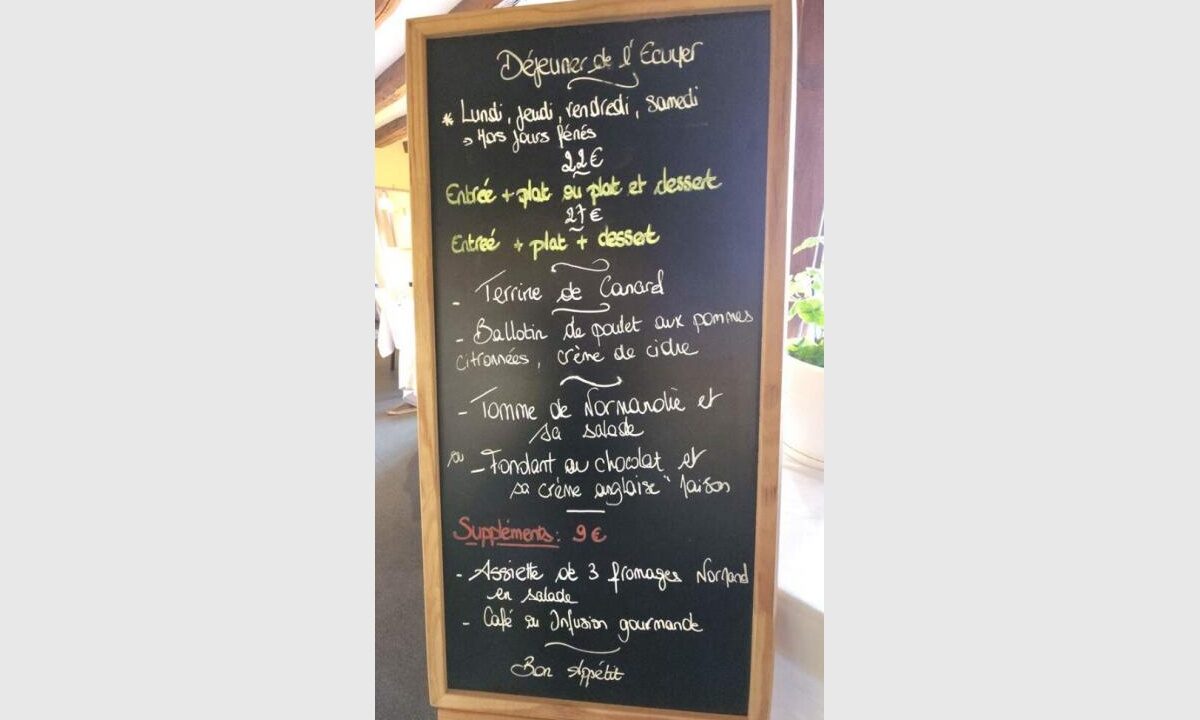 Déjeuner de l'Ecuyer
* Lundi, jeudi, vendredi, samedi
⇒ Hors jours fériés
22€
Entrée + plat ou plat et dessert
27€
Entreé + plat + dessert
- Terrine de Canard
- Ballotin de poulet aux pommes
citronnées, crème de cidre
- Tomme de Normandie et
sa salade
ou - Fondant au chocolat et
sa crème anglaise "Maison
Suppléments: 9€
- Assiette de 3 fromages Normand
en salade
- Café ou Infusion gourmande
Bon Appétit